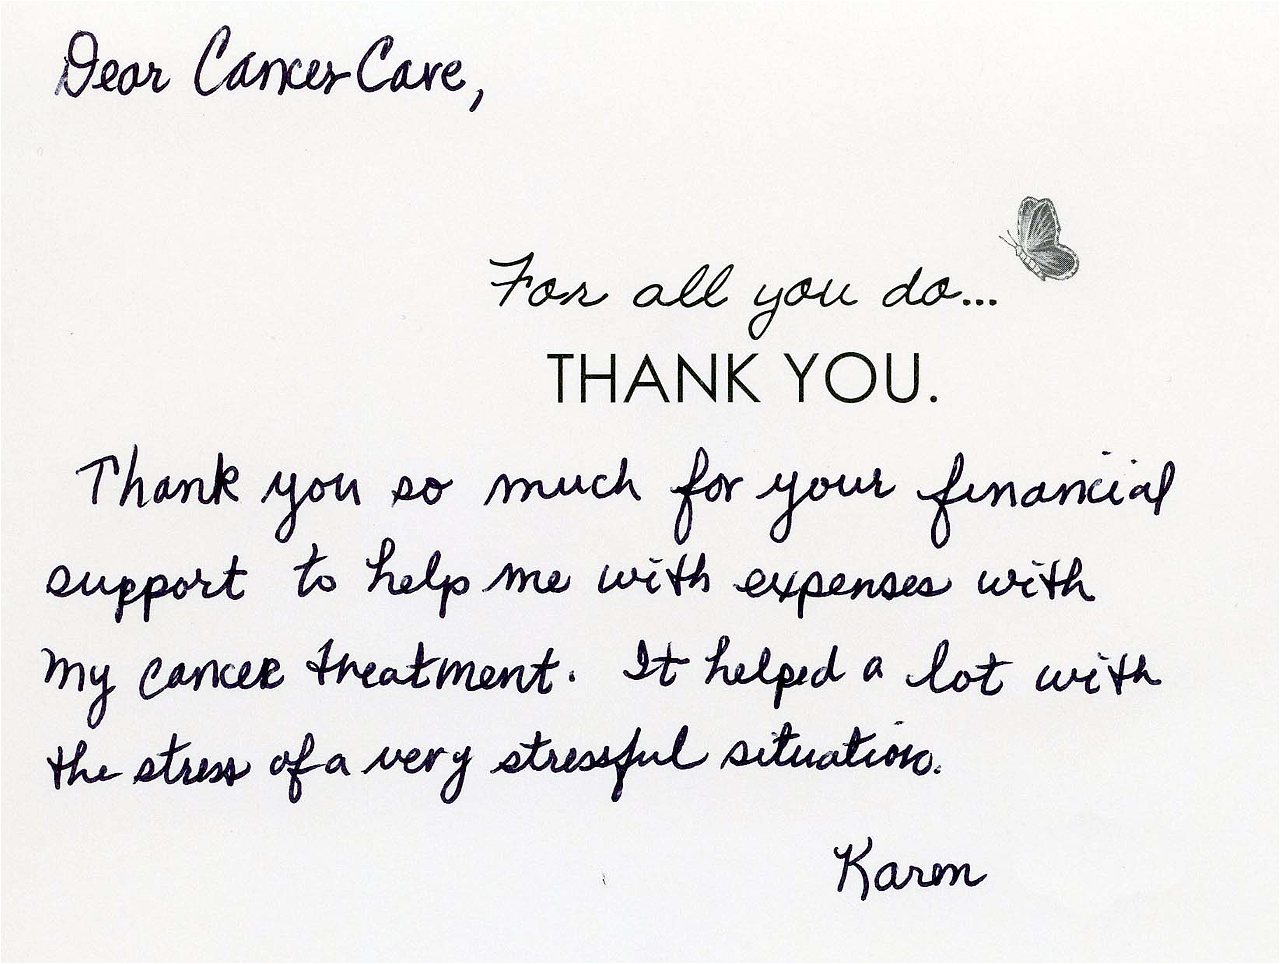 Dear CancerCare,
For all you do...
THANK YOU.
Thank you so much for your financial
support to help me with expenses with
my cancer treatment. It helped a lot with
the stress of a very stressful situation.
Karen